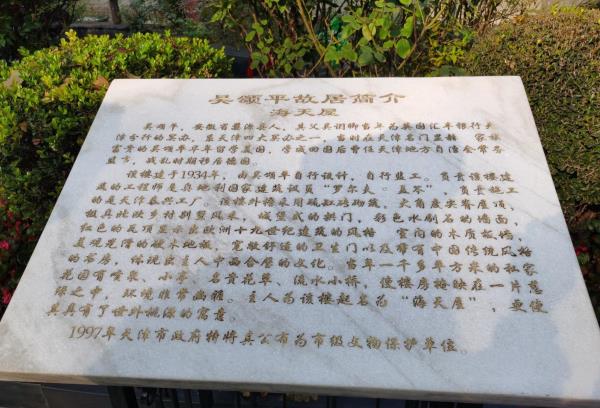 吴颂平故居简介
海天屋
吴颂平,安徽省婺源县人,其父吴调卿当年为英国汇丰银行天
津分行的买办,是天津四大买办之一,当时在天津名门显赫 家族
富贵的吴颂平早年留学美国,学成回国后曾任天津地方自治会常务
监事,战乱时期移居德国。
该楼建于1934年,由吴颂平自行设计,自行监工。负责该楼建
造的工程师是奥地利国家建筑议员“罗尔夫·盖苓”,负责施工
的是天津泰兴工厂。该楼外檐采用硫缸砖砌筑,大角度尖脊屋顶,
极具北欧乡村别墅风采,城堡式的拱门,彩色水刷石的墙面,
红色的瓦顶显示出欧洲十九世纪建筑的风格 室间的木质板墙,
美观光滑的硬木地板,宽敞舒适的卫生间以及带有中国传统风格
的书房,体现出主人中西合璧的文化。当年一千多平方米的私家
花园有喷泉、小亭、名贵花草、流水小桥,使楼房掩映在一片葱
绿之中,环境非常幽雅。主人为该楼起名为“海天屋”,更使
其具有了世外桃源的寓意。
1997年天津市政府将其公布为市级文物保护单位。